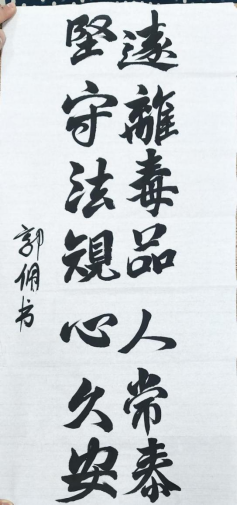 遠離毒品人常泰
堅守法規心久安
郭佣书